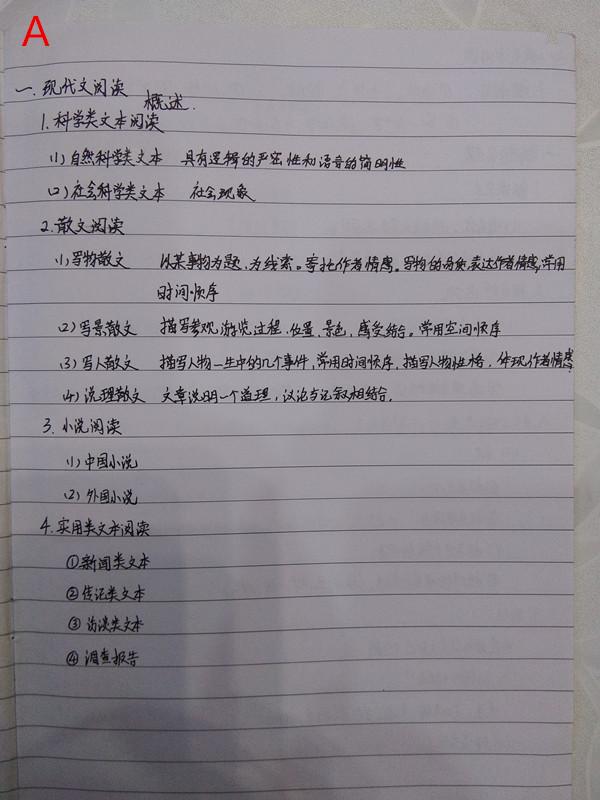 A
一. 现代文阅读
概述.
1. 科学类文本阅读
(1) 自然科学类文本 具有逻辑的严密性和语言的简明性
(2) 社会科学类文本 社会现象
2. 散文阅读
(1) 写物散文 以某事物为题,为线索。寄托作者情感。写物的品质,表达作者情感,常用
时间顺序
(2) 写景散文 描写参观,游览过程,位置、景色,感受结合。常用空间顺序
(3) 写人散文 描写人物一生中的几个事件,常用时间顺序,描写人物性格,体现作者情感
(4) 说理散文 文章说明一个道理,议论与记叙相结合.
3. 小说阅读
(1) 中国小说
(2) 外国小说
4. 实用类文本阅读
①新闻类文本
②传记类文本
③ 访谈类文本
④ 调查报告